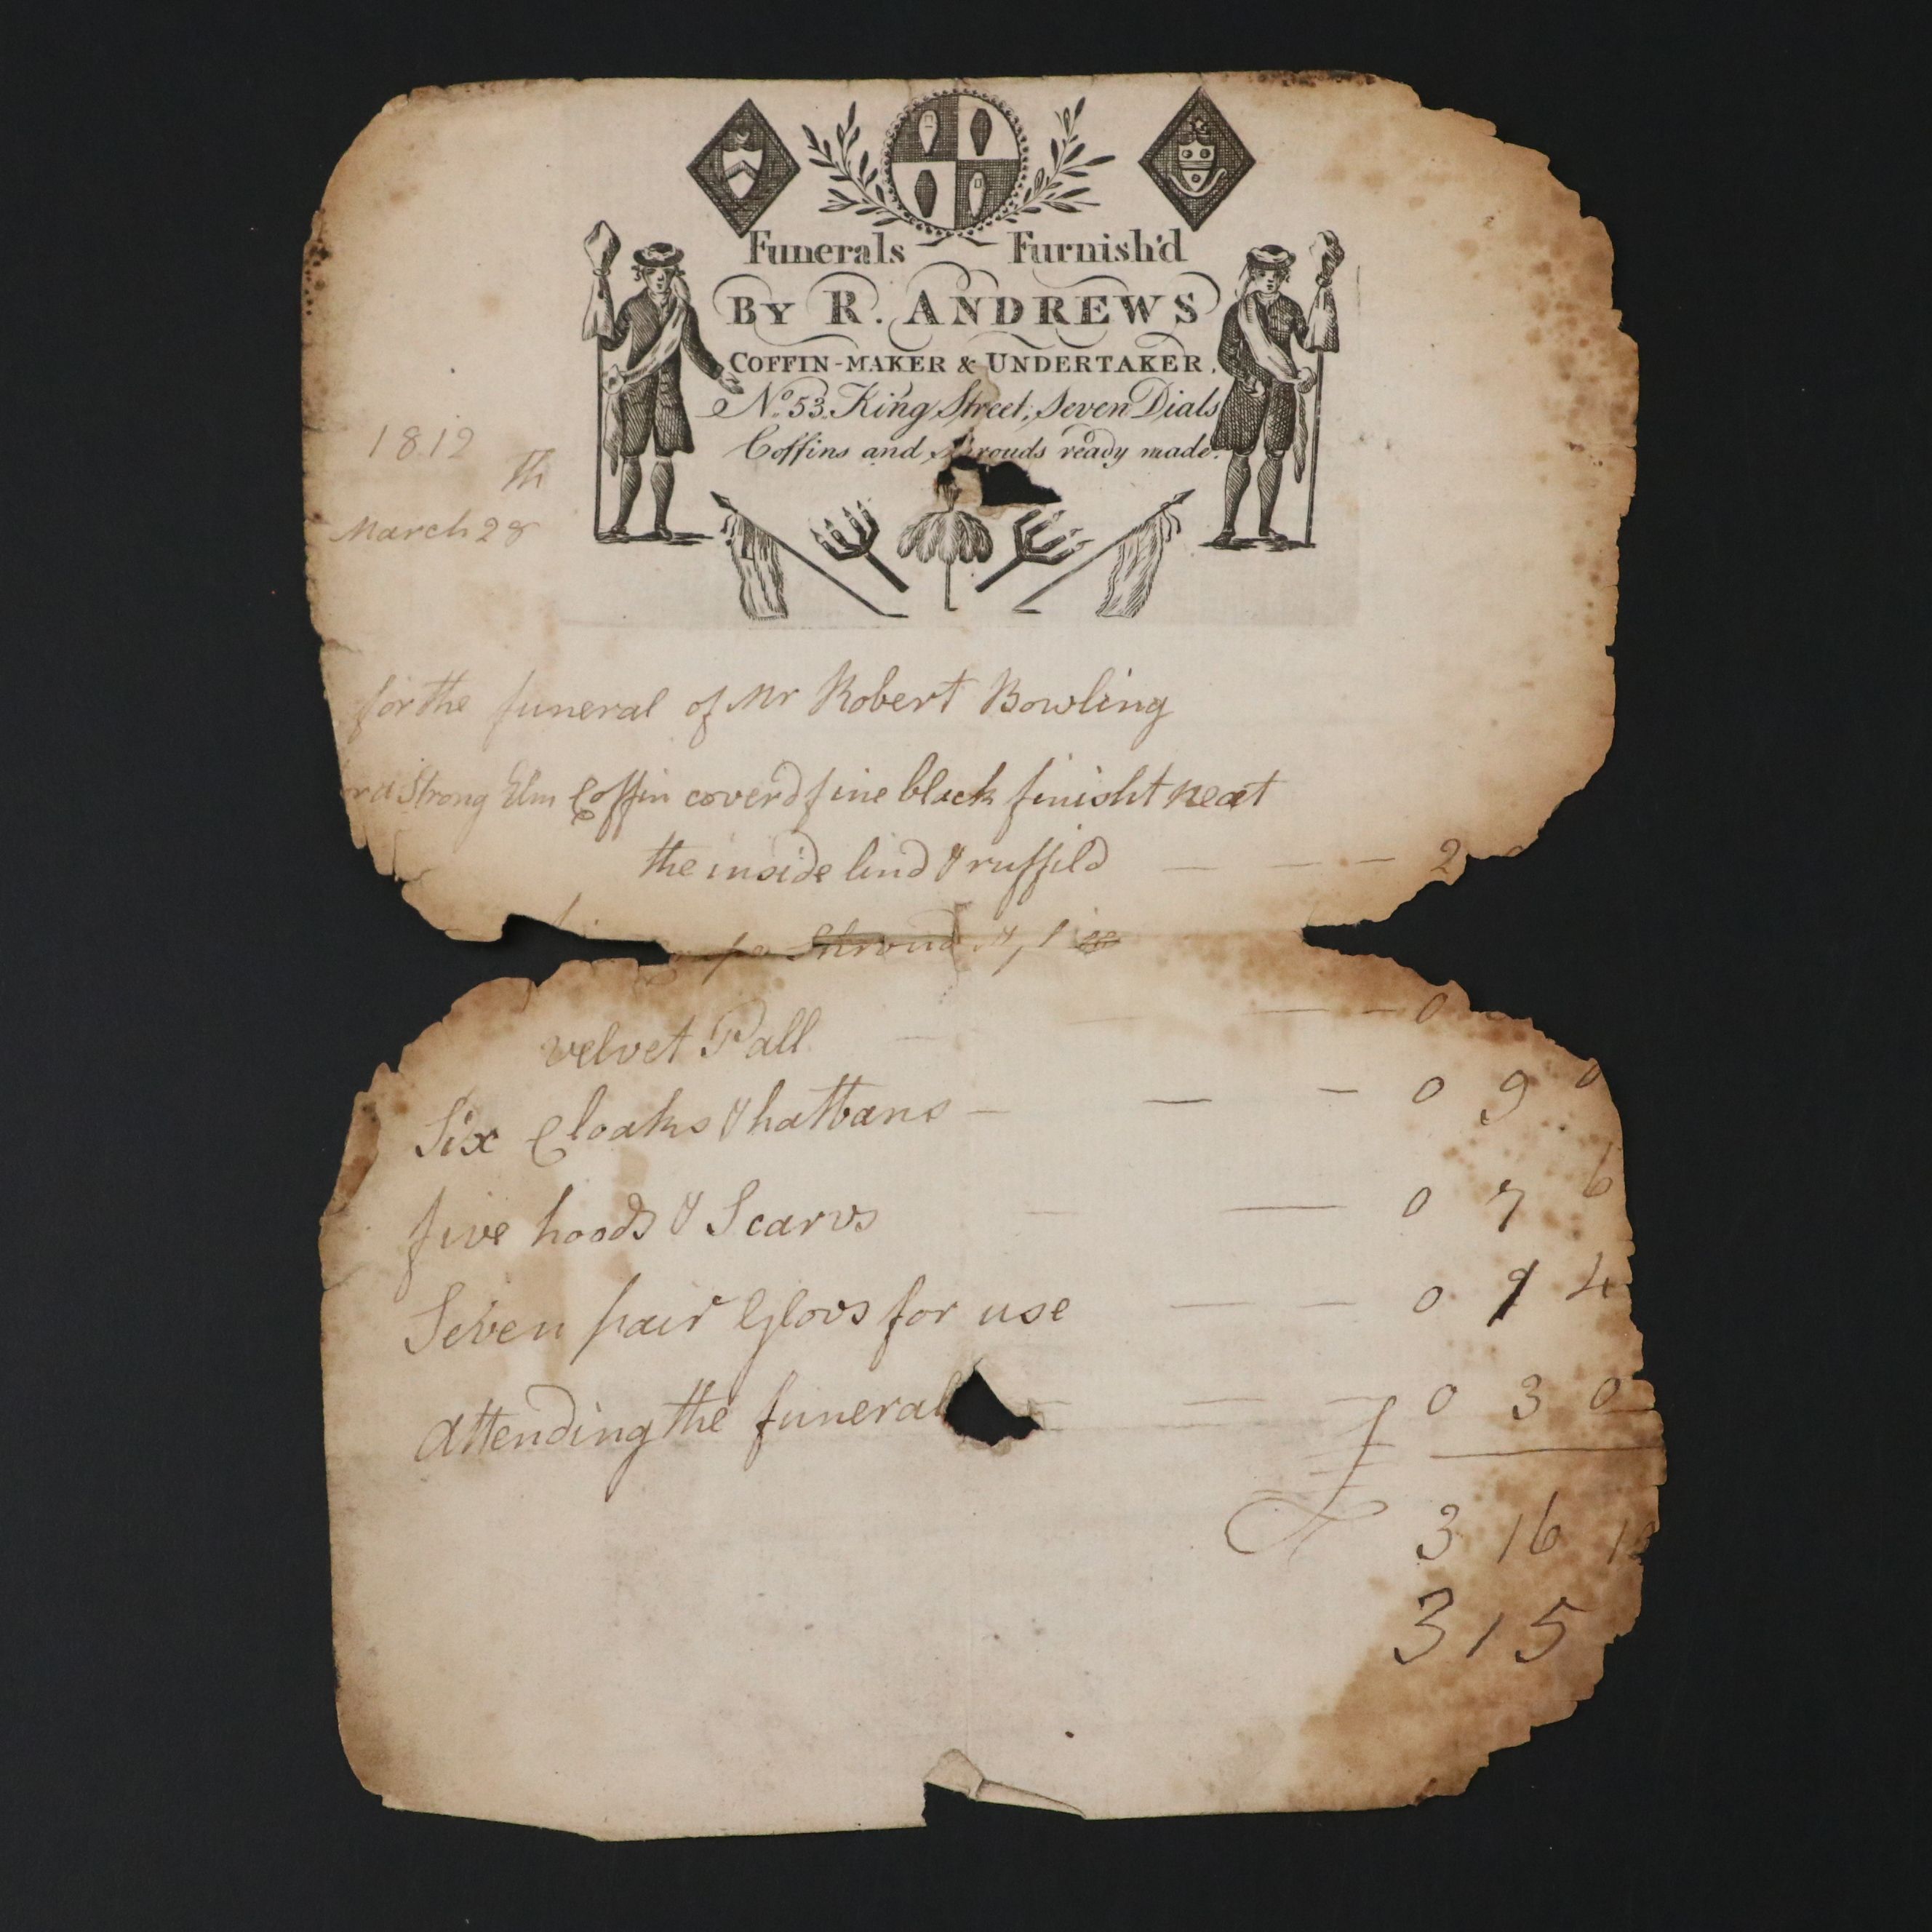 Funerals Furnish'd
BY R. ANDREWS
COFFIN-MAKER & UNDERTAKER.
No. 53. King Street, Seven Dials
Coffins and Shrouds ready made.
1812
th
March 28
for the funeral of Mr Robert Bowling
for a Strong Elm Coffin coverd fine black finisht neat
the inside lind & ruffild — — — 2
Shroud
velvet Pall — — — 0
Six Cloaks & hatbans — — — 0 9 0
five hoods & Scarvs — — 0 7 6
Seven pair Glovs for use — — 0 9 4
Attending the funeral — — — 0 3 0
£ 3 16 10
3 15